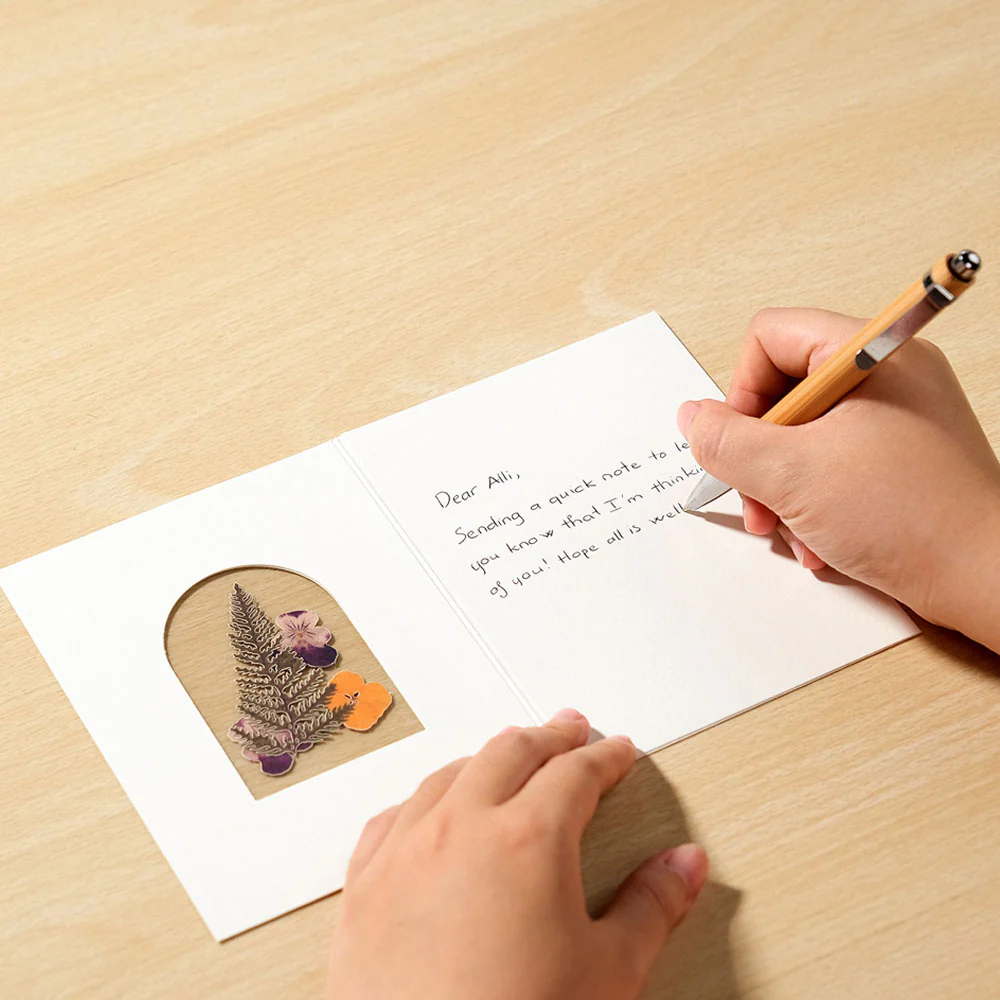 Dear Alli,
Sending a quick note to le
you know that I'm thinki
of you! Hope all is well